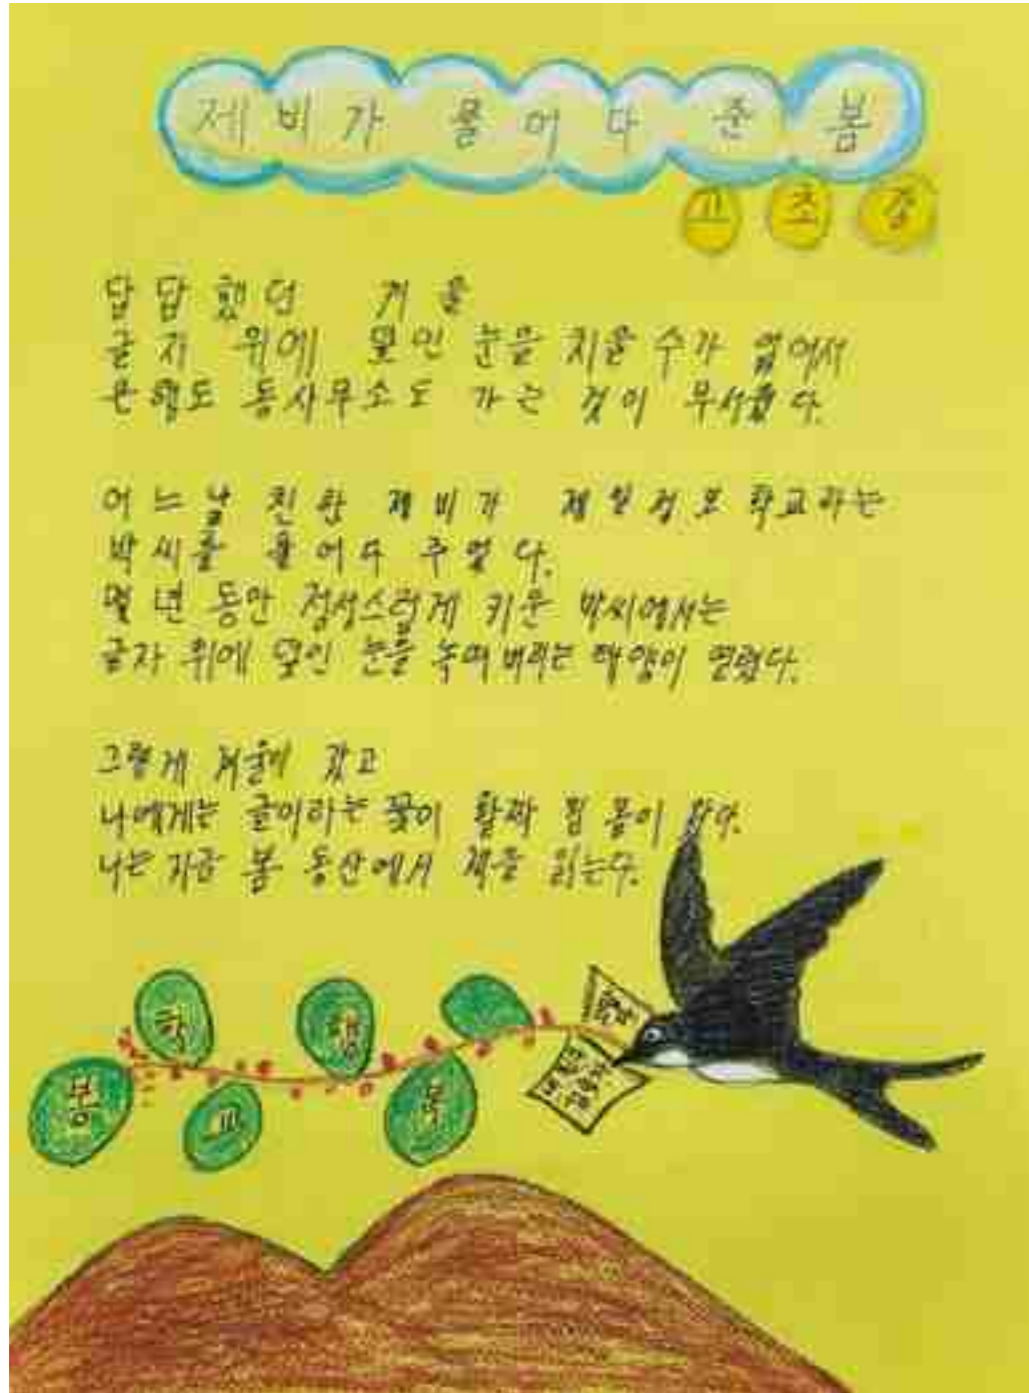 제비가 물어다 준 봄
고초강
답답했던 겨울
글자 위에 덮인 눈을 치울 수가 없어서
은행도 동사무소도 가는 것이 무서웠다.
어느날 친한 제비가 제일정보학교라는
박씨를 물어다 주었다.
몇 년 동안 정성스럽게 키운 박씨에서는
글자 위에 덮인 눈을 녹여버리는 태양이 열렸다.
그렇게 겨울이 갔고
나에게는 글이라는 꽃이 활짝 핀 봄이 왔다.
나는 지금 봄 동산에서 책을 읽는다.
학
행
봄
교
복